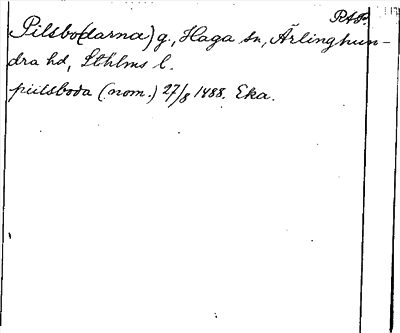 Pilsbo(darna) g., Haga sn, Ärlinghun-
dra hd, Sthlms l.
piilsboda (nom.) 27/8 1488. Eka.